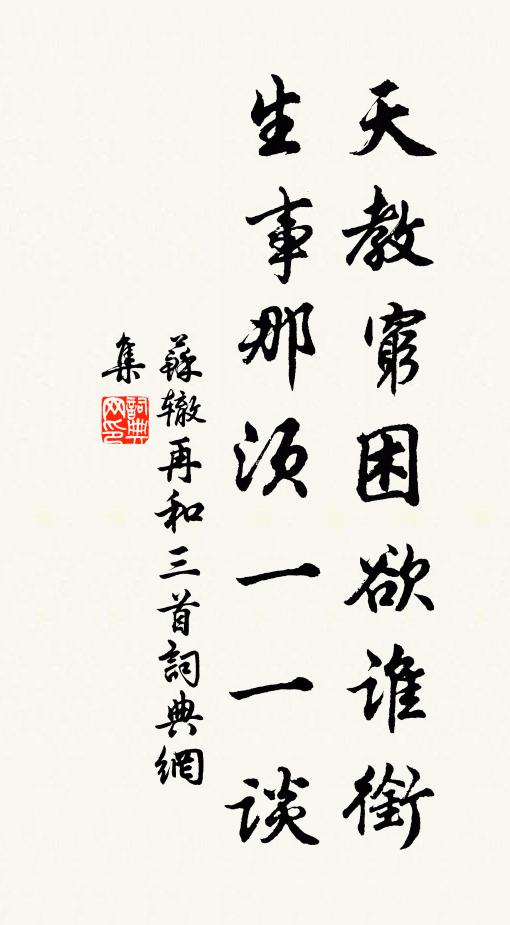 天教窮困欲谁銜
生事那须一一谈
蘇辙再和三首詞典網
集
詞典
网印